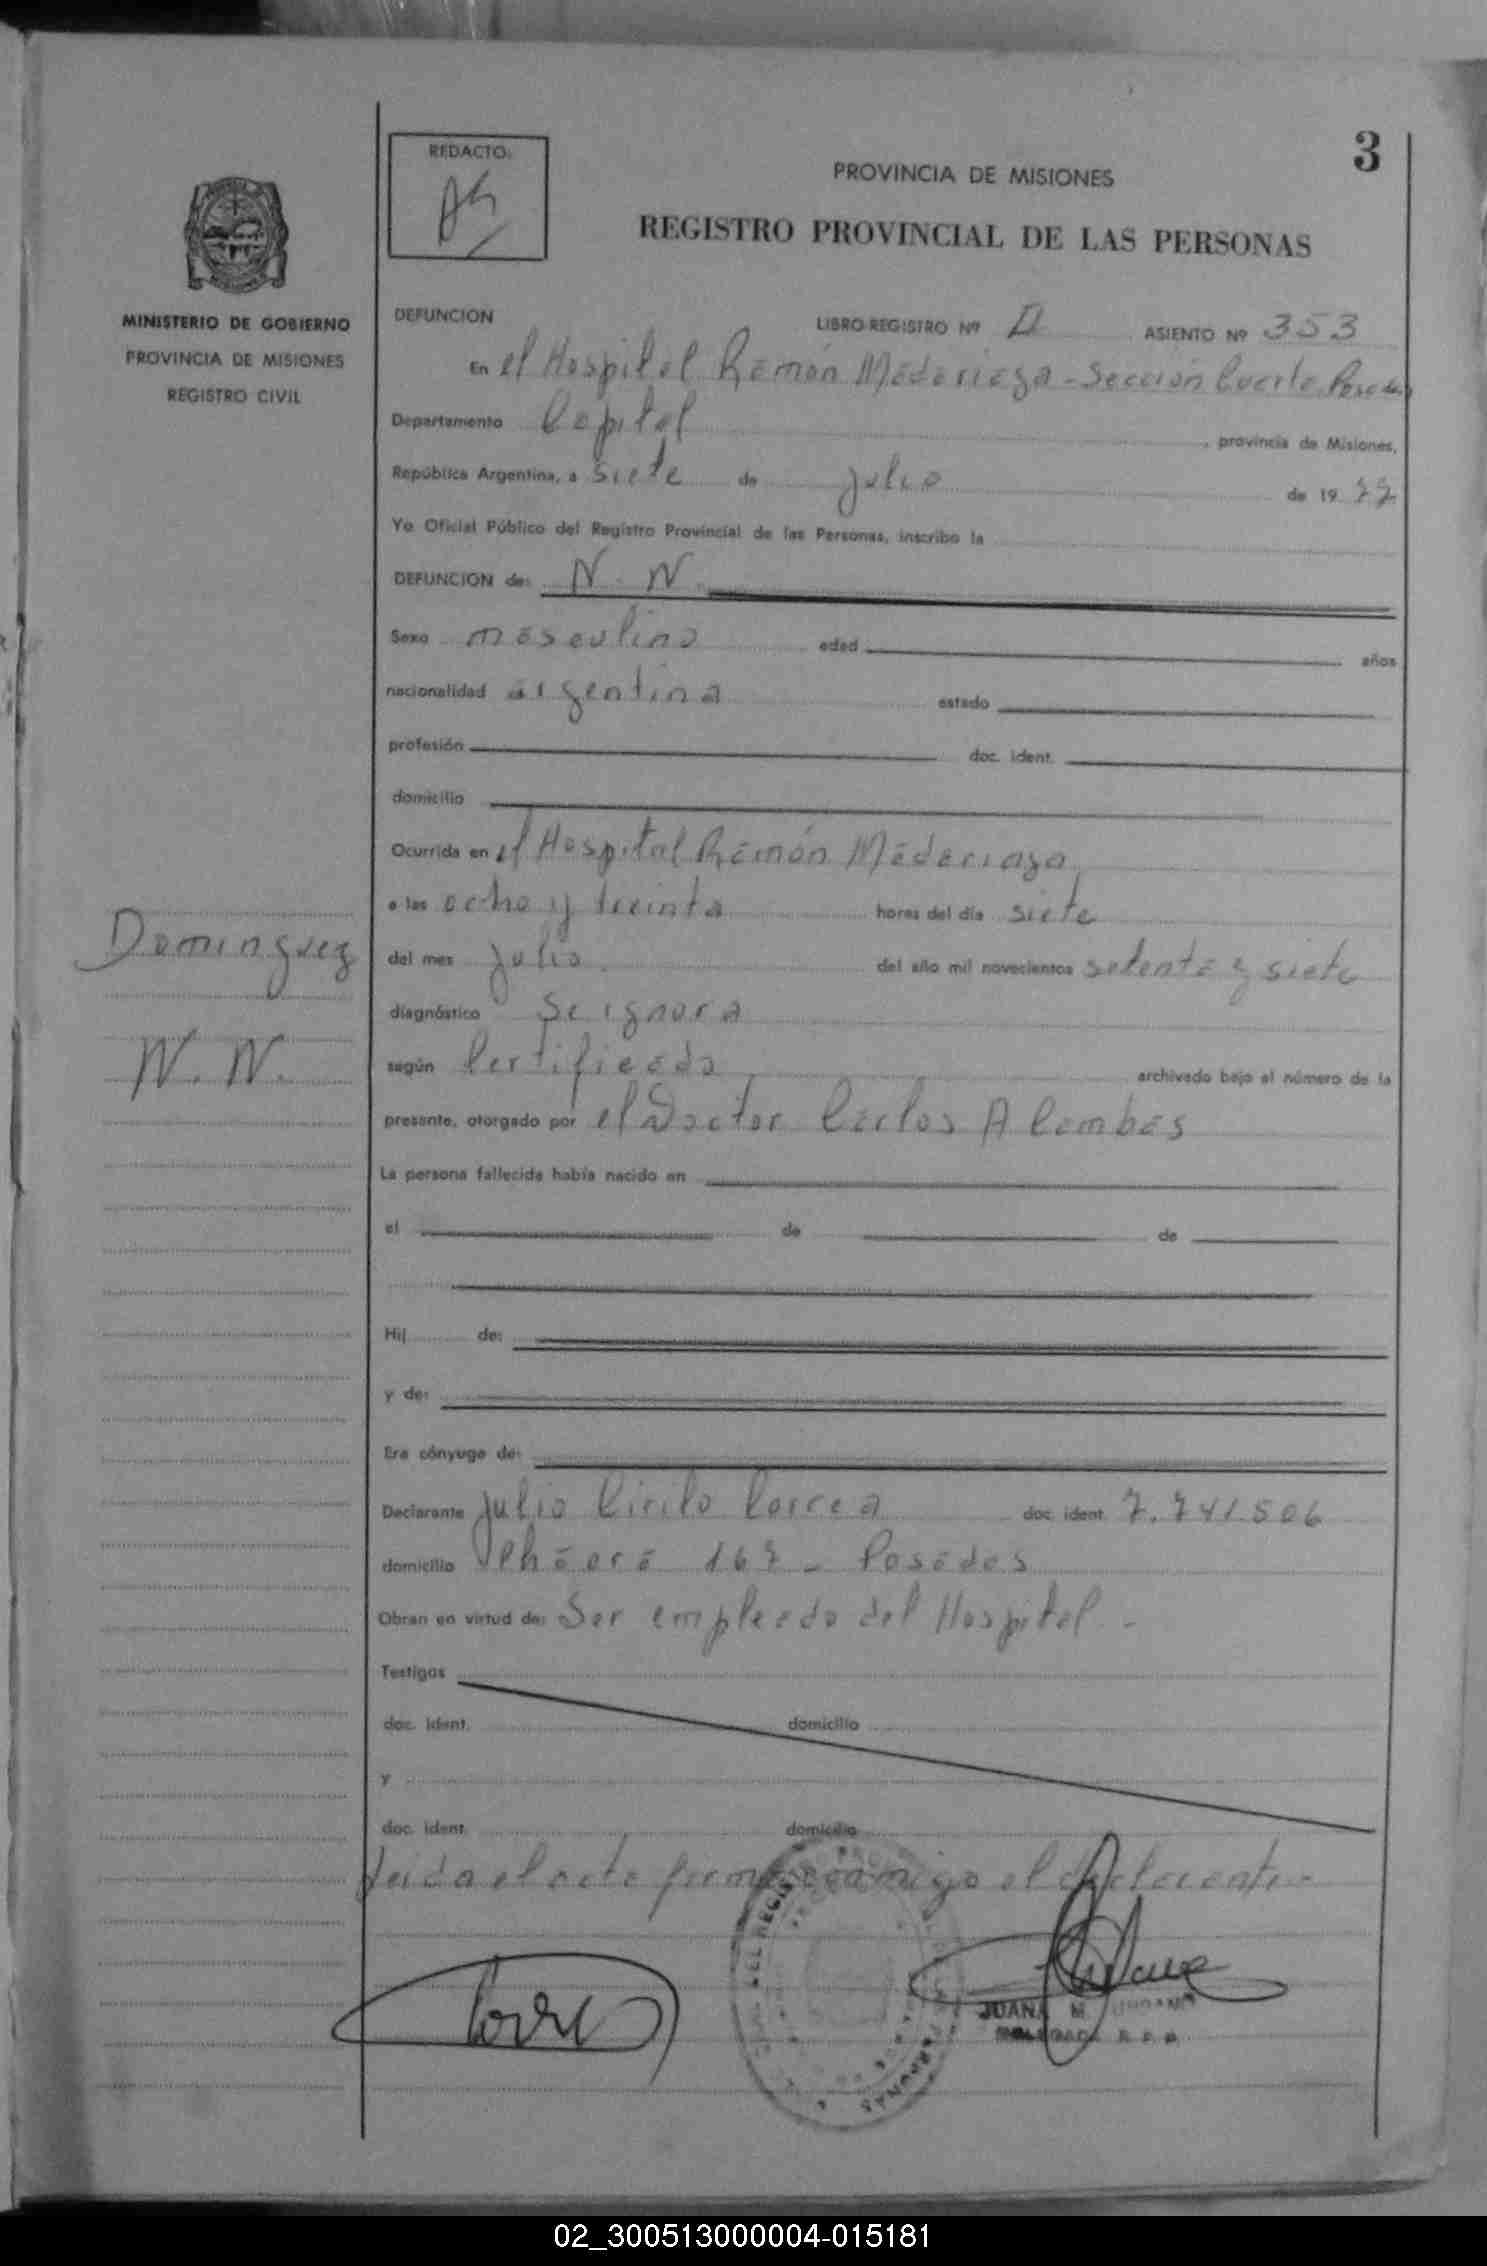 3
REDACTO:
PROVINCIA DE MISIONES
REGISTRO PROVINCIAL DE LAS PERSONAS
MINISTERIO DE GOBIERNO
PROVINCIA DE MISIONES
REGISTRO CIVIL
DEFUNCION
LIBRO-REGISTRO Nº D ASIENTO Nº 353
En el Hospital Ramón Madariaga - Sección Cuarta Posadas
Departamento Capital, provincia de Misiones,
República Argentina, a siete de julio de 1977
Yo Oficial Público del Registro Provincial de las Personas, inscribo la
DEFUNCION de: N. N.
Sexo masculino edad años
nacionalidad argentina estado
profesión doc. ident.
domicilio
Ocurrida en el Hospital Ramón Madariaga
a las ocho y treinta horas del día siete
Dominguez
del mes julio del año mil novecientos setenta y siete
diagnóstico se ignora
N. N.
según Certificado archivado bajo el número de la
presente, otorgado por el Doctor Carlos A
La persona fallecida había nacido en
el de de
Hij de:
y de:
Era cónyuge de:
Declarante Julio Cirilo Correa doc. ident. 7.741.506
domicilio 167 - Posadas
Obran en virtud de: Ser empleado del Hospital -
Testigos
doc. ident. domicilio
y
doc. ident. domicilio
Leida el acta firma conmigo el declarante
JUANA M.
02_300513000004-015181